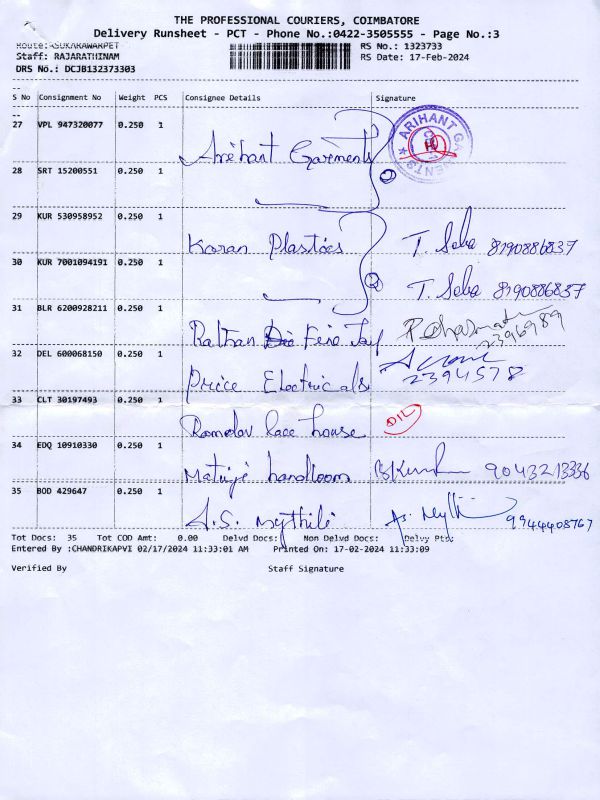 THE PROFESSIONAL COURIERS, COIMBATORE
Delivery Runsheet - PCT - Phone No.:0422-3505555 - Page No.:3
RS No.: 1323733
Staff: RAJARATHINAM RS Date: 17-Feb-2024
DRS No.: DCJB132373303
S No Consignment No Weight PCS Consignee Details Signature
27 VPL 947320077 0.250 1 Arihant Garments ARIHANT GARMENTS
28 SRT 15200551 0.250 1
29 KUR 530958952 0.250 1 Karan Plastics T. Seba 8190886837
30 KUR 7001094191 0.250 1 T. Seba 8190886837
31 BLR 6200928211 0.250 1 2396989
32 DEL 600068150 0.250 1 Price Electricals 2394578
33 CLT 30197493 0.250 1 lace house
34 EDQ 10910330 0.250 1 handloom 9043213336
35 BOD 429647 0.250 1 A.S. Mythili 9944408767
Tot Docs: 35 Tot COD Amt: 0.00 Delvd Docs: Non Delvd Docs: Delvy Pts:
Entered By :CHANDRIKAPVI 02/17/2024 11:33:01 AM Printed On: 17-02-2024 11:33:09
Verified By Staff Signature